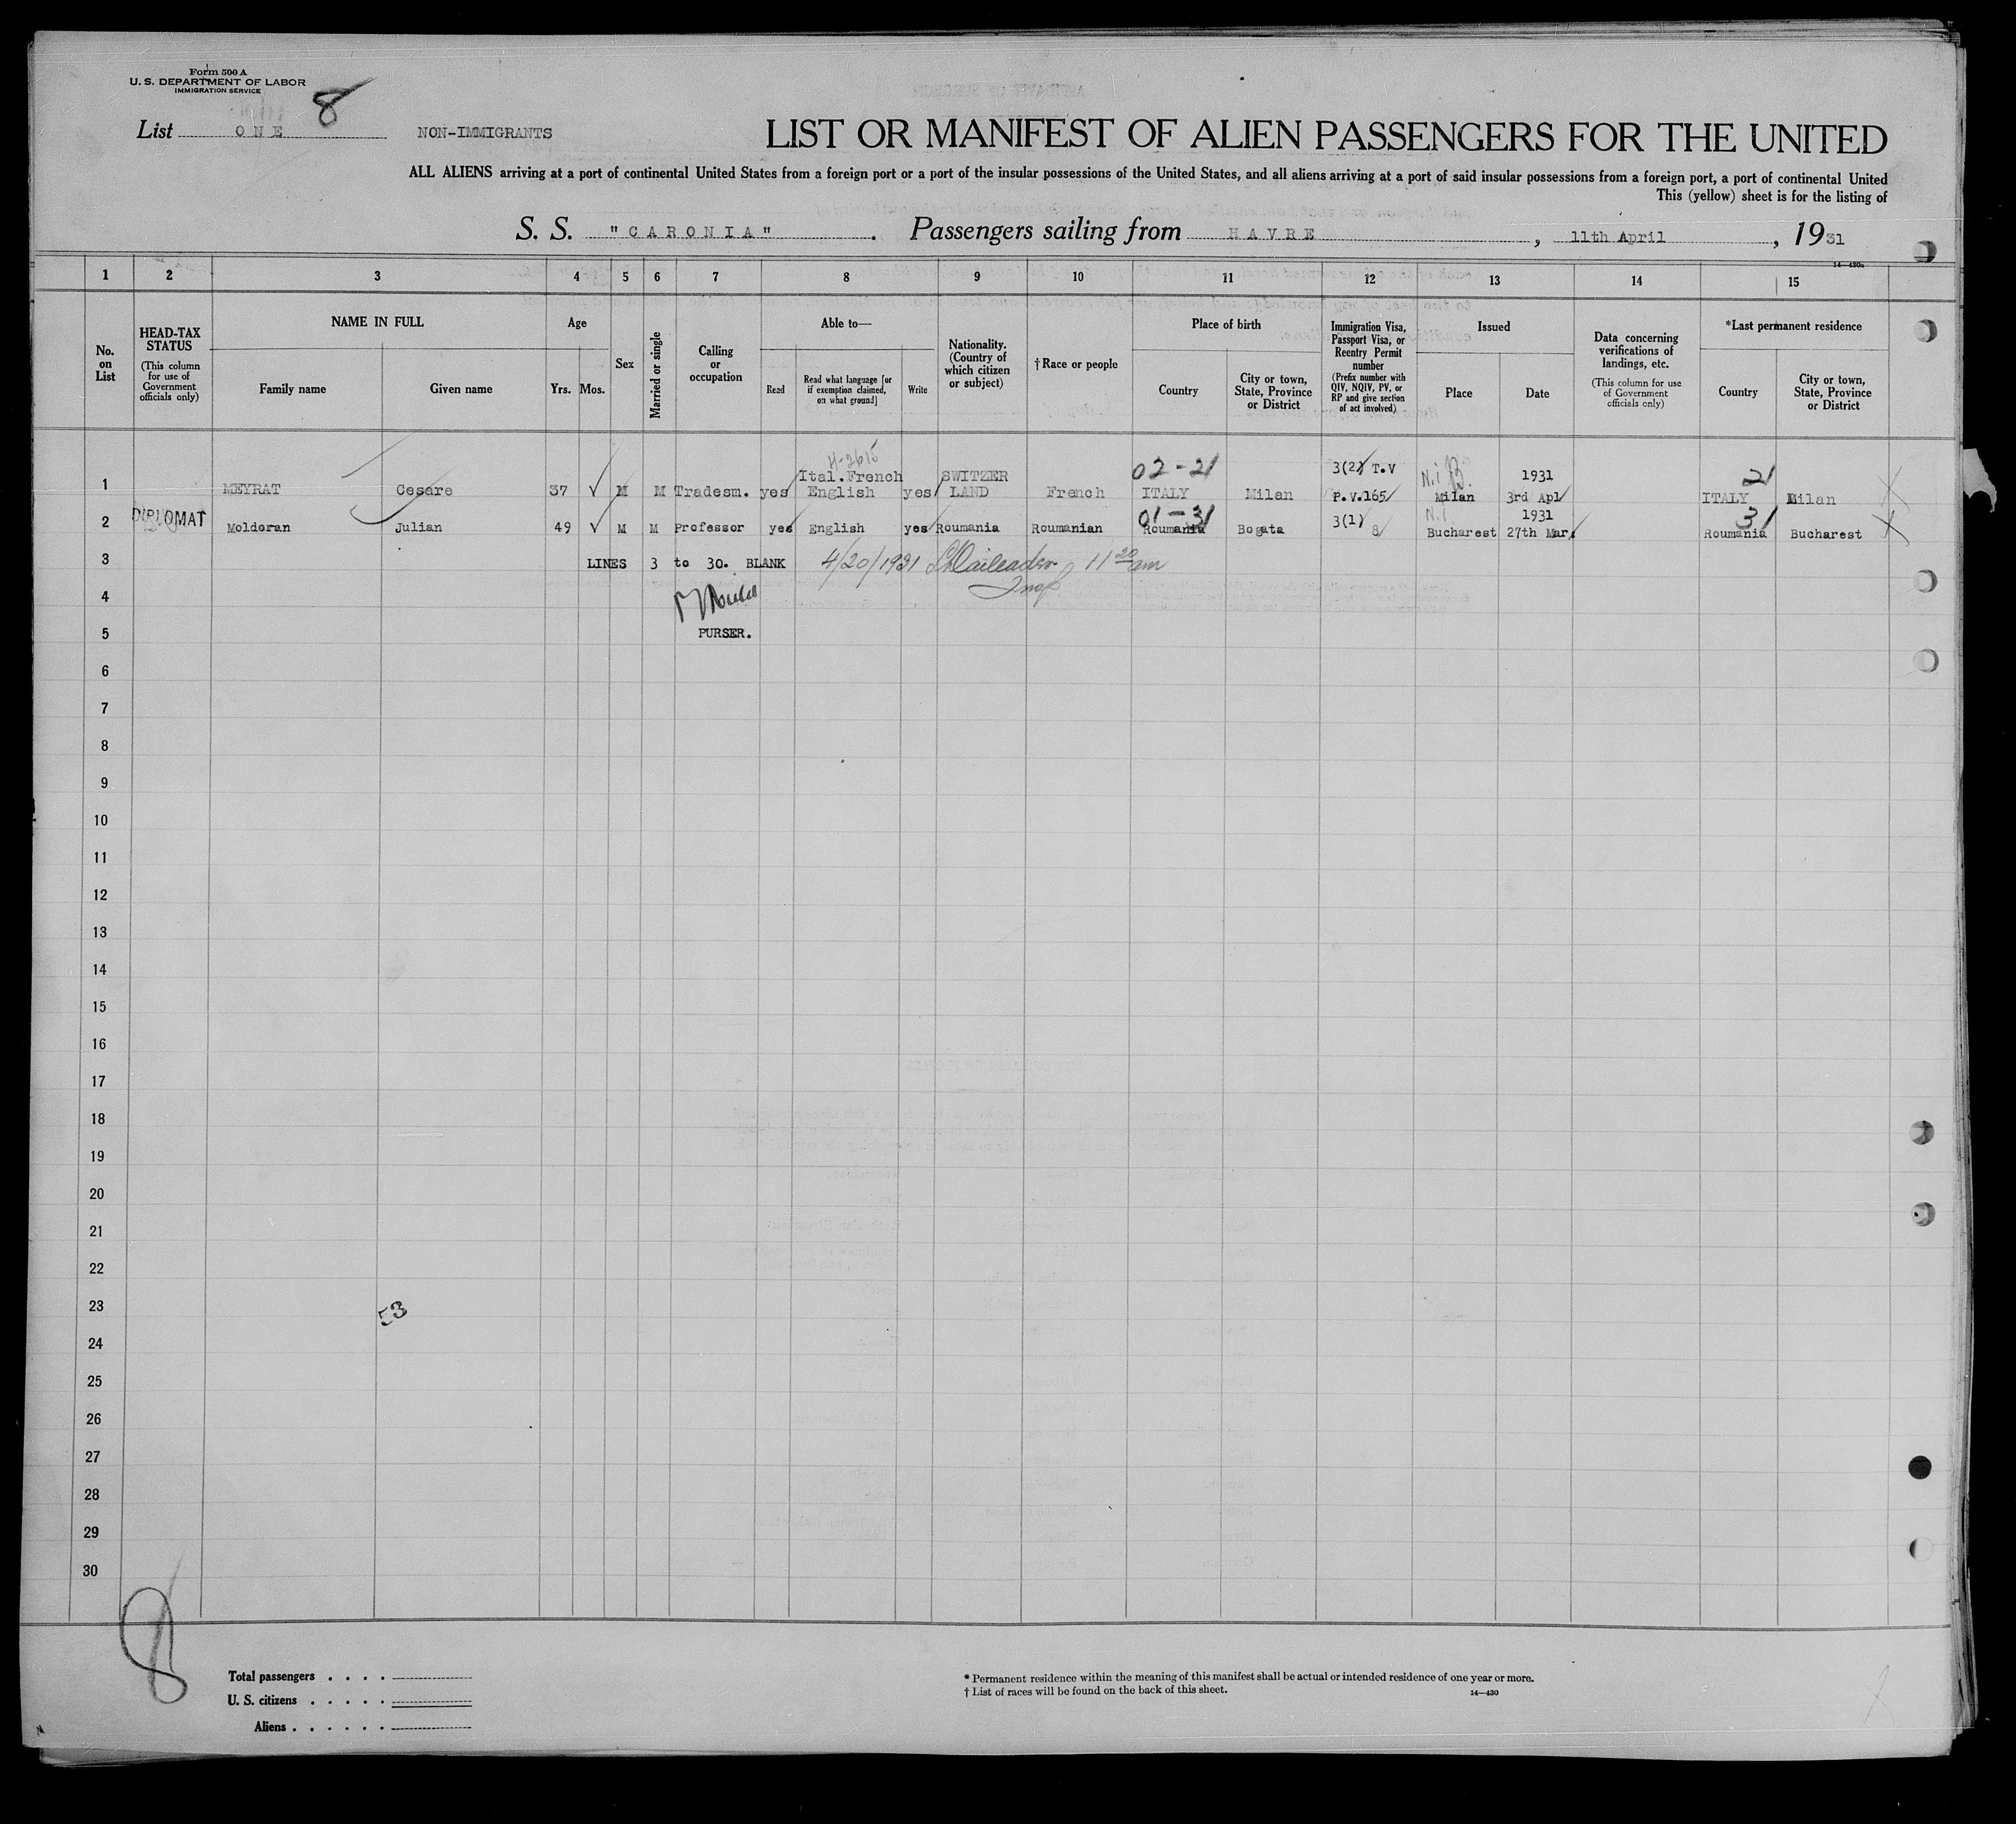 Form 500 A
U. S. DEPARTMENT OF LABOR
IMMIGRATION SERVICE
8
List ONE NON-IMMIGRANTS
LIST OR MANIFEST OF ALIEN PASSENGERS FOR THE UNITED
ALL ALIENS arriving at a port of continental United States from a foreign port or a port of the insular possessions of the United States, and all aliens arriving at a port of said insular possessions from a foreign port, a port of continental United
This (yellow) sheet is for the listing of
S. S. "CARONIA". Passengers sailing from HAVRE, 11th April, 1931
14—430a
1 2 3 4 5 6 7 8 9 10 11 12 13 14 15
No. on List
HEAD-TAX STATUS
(This column for use of Government officials only)
NAME IN FULL
Family name
Given name
Age
Yrs. Mos.
Sex
Married or single
Calling or occupation
Able to—
Read
Read what language [or if exemption claimed, on what ground]
Write
Nationality. (Country of which citizen or subject)
†Race or people
Place of birth
Country
City or town, State, Province or District
Immigration Visa, Passport Visa, or Reentry Permit number
(Prefix number with QIV, NQIV, PV, or RP and give section of act involved)
Issued
Place
Date
Data concerning verifications of landings, etc.
(This column for use of Government officials only)
*Last permanent residence
Country
City or town, State, Province or District
H-2615
Ital.French SWITZER 02-21 3(2) T.V N.i B. 1931 21
1 MEYRAT Cesare 37 √ M M Tradesm. yes English yes LAND French ITALY Milan P.V.165 Milan 3rd Apl ITALY Milan X
DIPLOMAT 01-31 3(1) N.I. 1931 31
2 Moldoran Julian 49 √ M M Professor yes English yes Roumania Roumanian Roumania Bogata 8 Bucharest 27th Mar. Roumania Bucharest X
3 LINES 3 to 30. BLANK 4/20/1931 11 20 am
Insp
4
5 PURSER.
6
7
8
9
10
11
12
13
14
15
16
17
18
19
20
21
22
23 53
24
25
26
27
28
29
30
8
Total passengers . . . .
U. S. citizens . . . . .
Aliens . . . . . .
* Permanent residence within the meaning of this manifest shall be actual or intended residence of one year or more.
† List of races will be found on the back of this sheet. 14—430